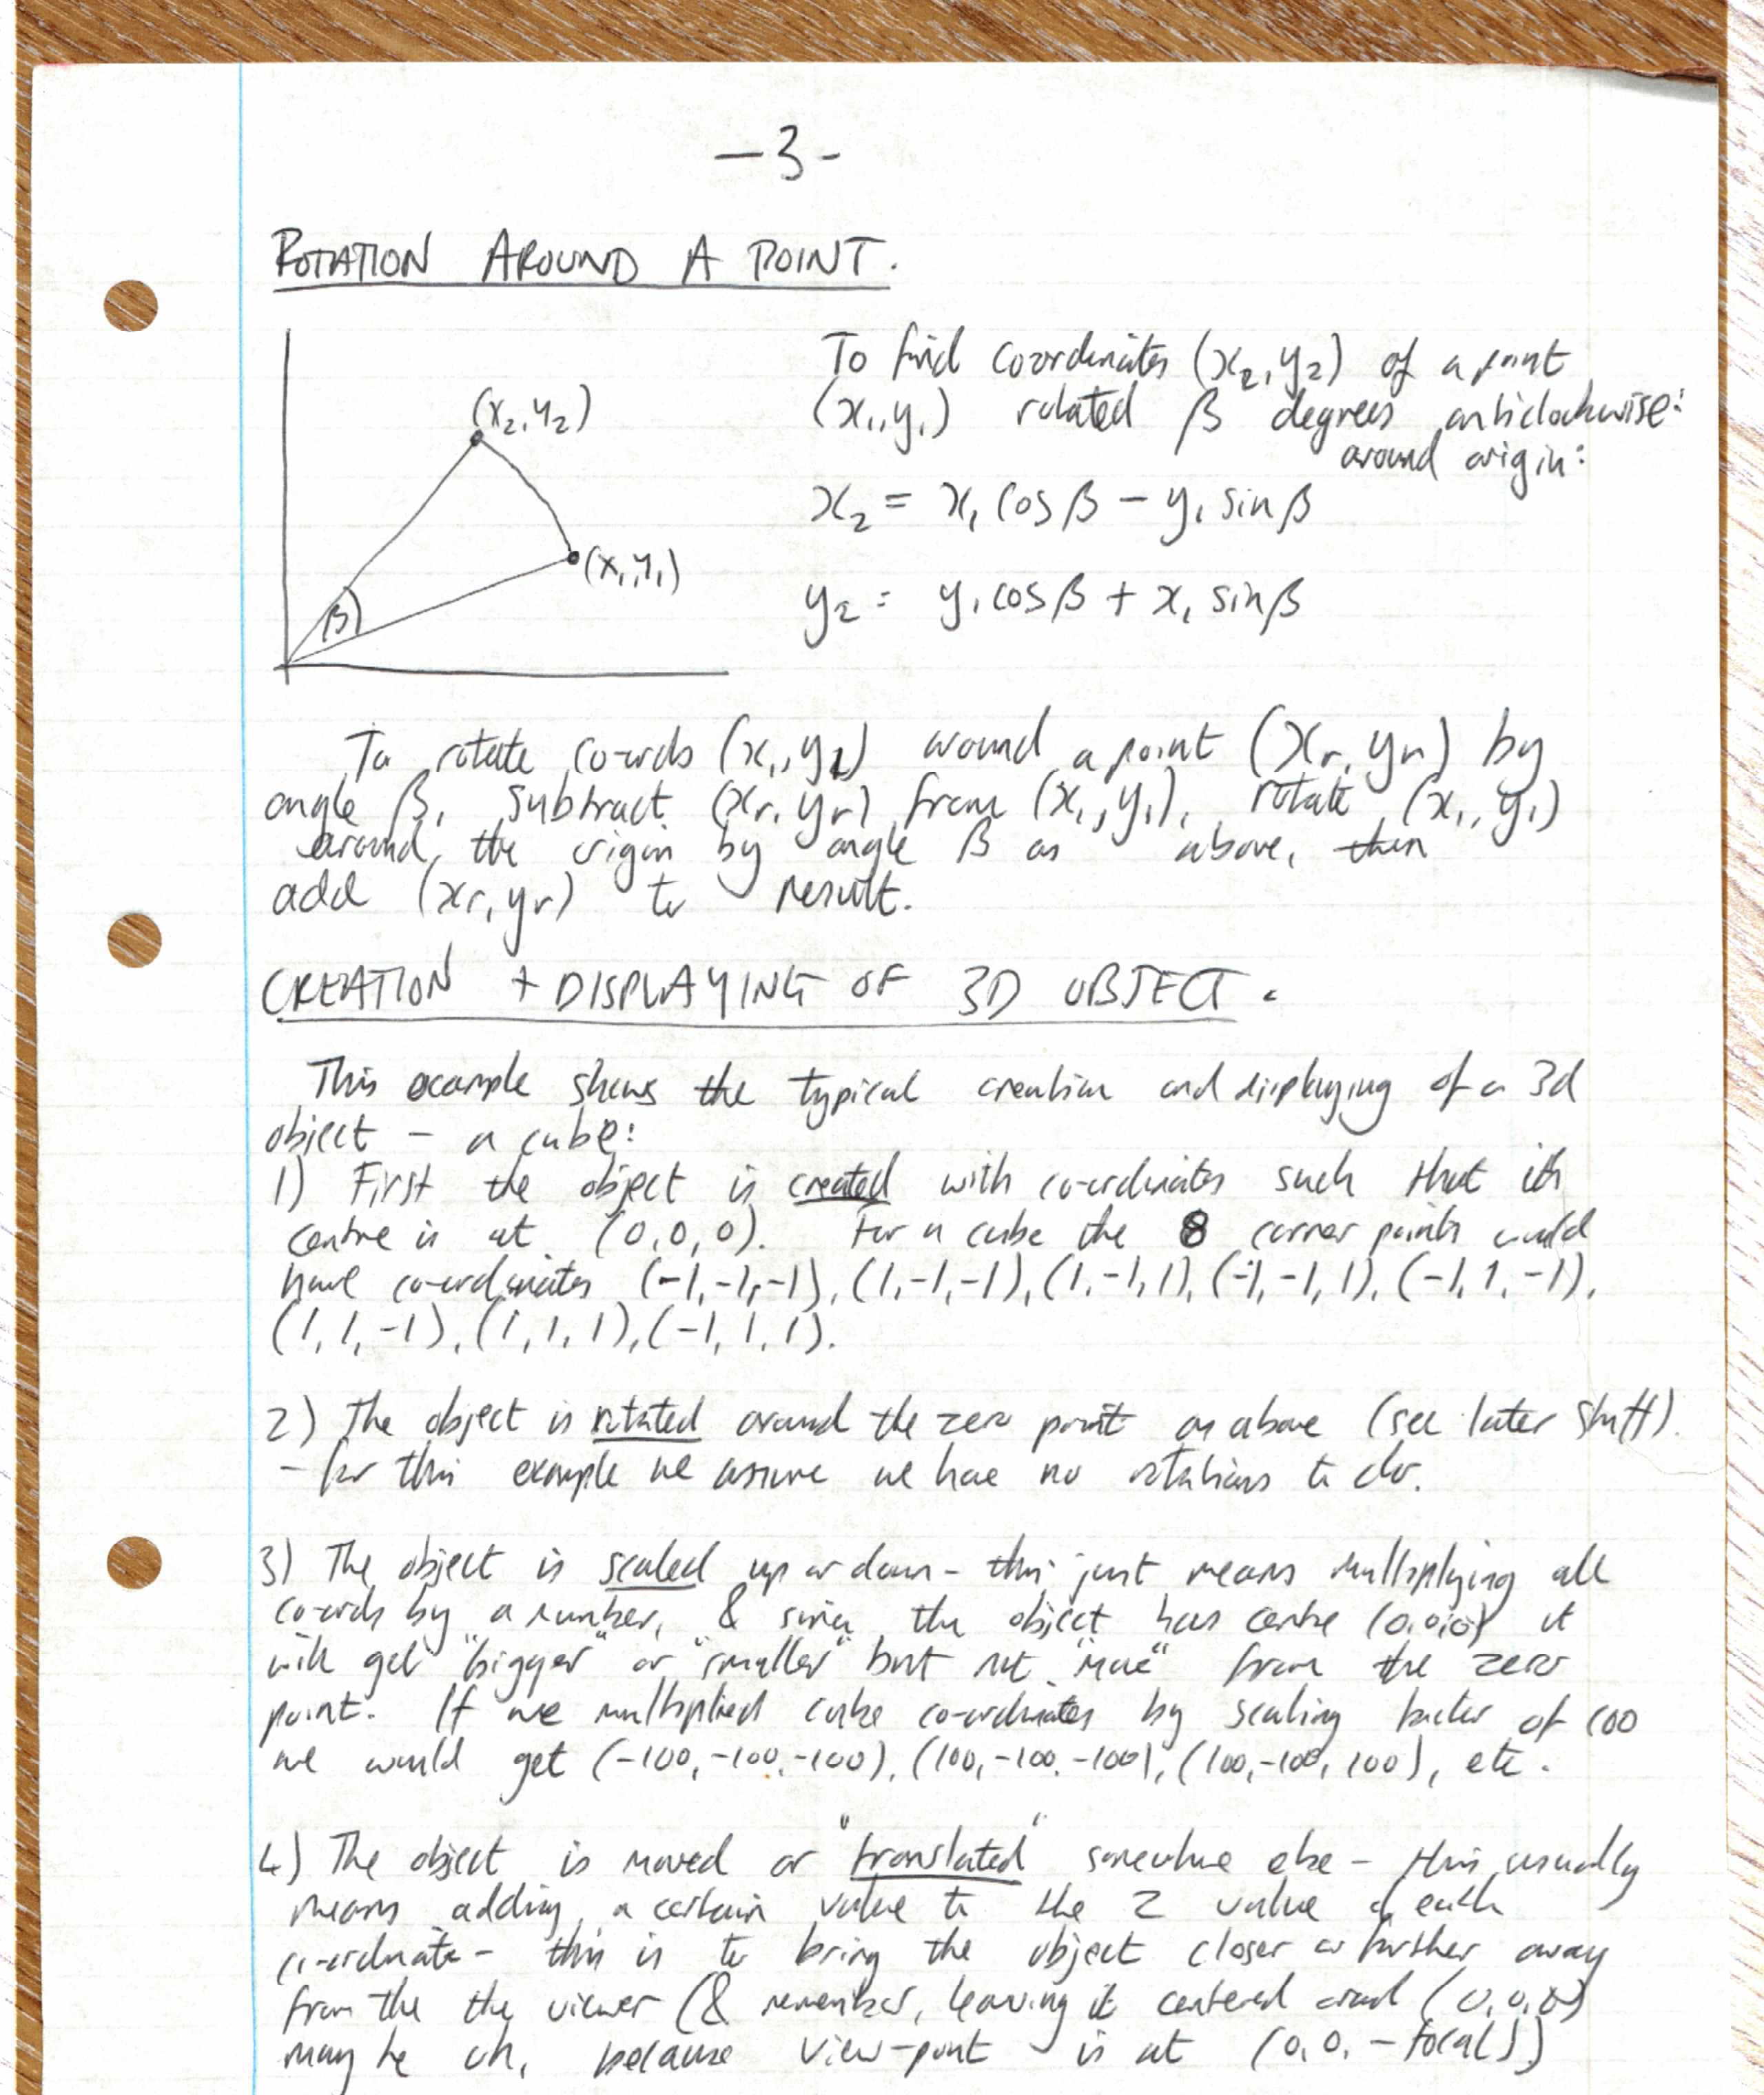 -3-
ROTATION AROUND A POINT.
(x₂,y₂)
(x₁,y₁)
β
To find coordinates (x₂,y₂) of a point
(x₁,y₁) rotated β degrees anticlockwise:
around origin:
x₂ = x₁ cosβ - y₁ sinβ
y₂ = y₁ cosβ + x₁ sinβ
To rotate co-ords (x₁,y₁) around a point (xr,yr) by
angle β, subtract (xr,yr) from (x₁,y₁), rotate (x₁,y₁)
around the origin by angle β as above, then
add (xr,yr) to result.
CREATION + DISPLAYING OF 3D OBJECT.
This example shows the typical creation and displaying of a 3d
object - a cube:
1) First the object is created with co-ordinates such that its
centre is at (0,0,0). For a cube the 8 corner points could
have co-ordinates (-1,-1,-1), (1,-1,-1), (1,-1,1), (-1,-1,1), (-1,1,-1),
(1,1,-1), (1,1,1), (-1,1,1).
2) The object is rotated around the zero point as above (see later stuff).
- for this example we assume we have no rotations to do.
3) The object is scaled up or down - this just means multiplying all
co-ords by a number, & since the object has centre (0,0,0) it
will get "bigger" or "smaller" but not "move" from the zero
point. If we multiplied cube co-ordinates by scaling factor of 100
we would get (-100,-100,-100), (100,-100,-100), (100,-100,100), etc.
4) The object is moved or "translated" somewhere else - this usually
means adding a certain value to the z value of each
co-ordinate - this is to bring the object closer or further away
from the the viewer (& remember, leaving it centered around (0,0,0)
may be ok, because view-point is at (0,0,-focal))